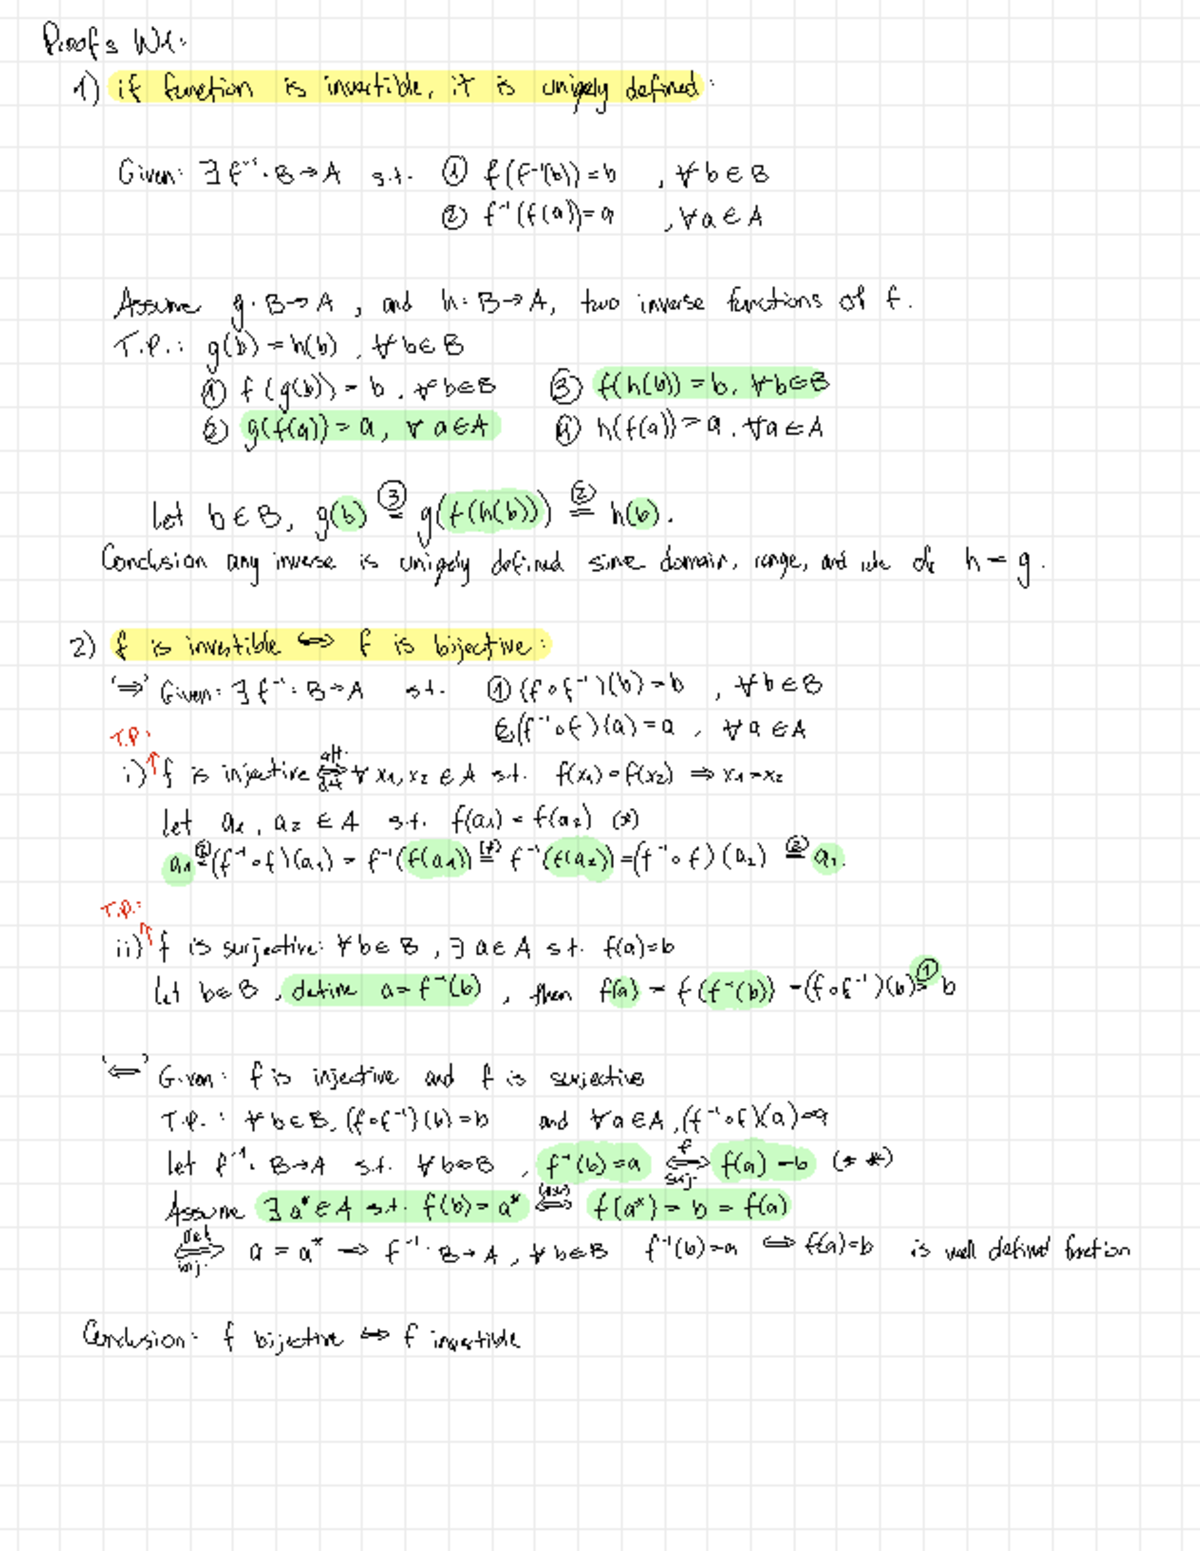 Proofs W1:
1) if function is invertible, it is uniqely defined:
Given: ∃ f⁻¹: B→A s.t. ① f(f⁻¹(b))=b , ∀ b ∈ B
② f⁻¹(f(a))=a , ∀ a ∈ A
Assume g: B→A , and h: B→A, two inverse functions of f.
T.P.: g(b)=h(b) , ∀ b∈B
① f(g(b)) = b , ∀ b∈B ③ f(h(b)) = b, ∀ b∈B
② g(f(a)) = a, ∀ a∈A ④ h(f(a)) = a, ∀ a∈A
Let b∈B, g(b) ③= g(f(h(b))) ②= h(b).
Conclusion any inverse is uniqely defined sine domain, range, and rule of h = g.
2) f is invertible ⇔ f is bijective:
'⇒' Given: ∃ f⁻¹: B→A s.t. ① (f∘f⁻¹)(b)=b , ∀ b∈B
② (f⁻¹∘f)(a)=a , ∀ a∈A
T.P:
i)↑ f is injective ⇔ ∀ x₁,x₂ ∈ A s.t. f(x₁)=f(x₂) ⇒ x₁=x₂
let a₁, a₂ ∈ A s.t. f(a₁) = f(a₂) (*)
a₁ ②= (f⁻¹∘f)(a₁) = f⁻¹(f(a₁)) (*)= f⁻¹(f(a₂)) = (f⁻¹∘f)(a₂) ②= a₂.
T.P.:
ii)↑ f is surjective: ∀ b∈B , ∃ a∈A s.t. f(a)=b
let b∈B , define a=f⁻¹(b) , then f(a) = f(f⁻¹(b)) = (f∘f⁻¹)(b) ①= b
'⇐' Given: f is injective and f is surjective
T.P.: ∀ b∈B, (f∘f⁻¹)(b)=b and ∀ a∈A, (f⁻¹∘f)(a)=a
let f⁻¹: B→A s.t. ∀ b∈B , f⁻¹(b)=a f⇔surj. f(a)=b (**)
Assume ∃ a*∈A s.t. f(b)=a* (**)⇔ f(a*) = b = f(a)
def⇔inj. a = a* ⇒ f⁻¹: B→A , ∀ b∈B f⁻¹(b)=a ⇔ f(a)=b is well defined function
Conclusion: f bijective ⇔ f invertible